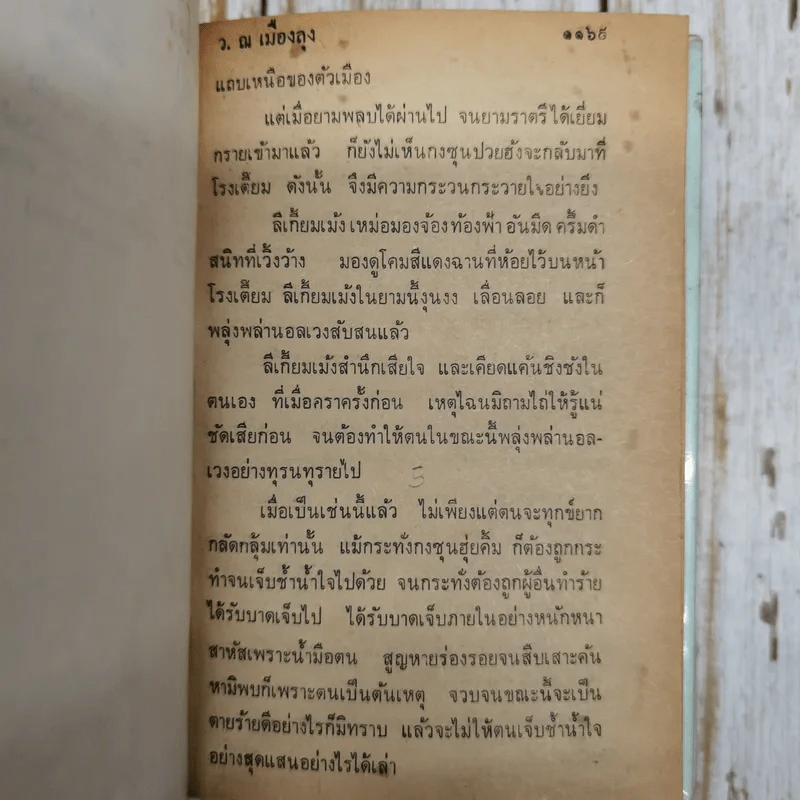 ว. ณ เมืองลุง ๑๑๖๙
แถบเหนือของตัวเมือง
แต่เมื่อยามพลบได้ผ่านไป จนยามราตรีได้เยี่ยม
กรายเข้ามาแล้ว ก็ยังไม่เห็นกงซุนปวยฮังจะกลับมาที่
โรงเตี๊ยม ดังนั้น จึงมีความกระวนกระวายใจอย่างยิ่ง
ลีเกี๊ยมเม้ง เหม่อมองจ้องท้องฟ้า อันมืด ครึ้มดำ
สนิทที่เวิ้งว้าง มองดูโคมสีแดงฉานที่ห้อยไว้บนหน้า
โรงเตี๊ยม ลีเกี๊ยมเม้งในยามนี้งุนงง เลื่อนลอย และก็
พลุ่งพล่านอลเวงสับสนแล้ว
ลีเกี๊ยมเม้งสำนึกเสียใจ และเคียดแค้นชิงชังใน
ตนเอง ที่เมื่อคราครั้งก่อน เหตุไฉนมิถามไถ่ให้รู้แน่
ชัดเสียก่อน จนต้องทำให้ตนในขณะนี้พลุ่งพล่านอล-
เวงอย่างทุรนทุรายไป
5
เมื่อเป็นเช่นนี้แล้ว ไม่เพียงแต่ตนจะทุกข์ยาก
กลัดกลุ้มเท่านั้น แม้กระทั่งกงซุนฮุ่ยคิ้ม ก็ต้องถูกกระ
ทำจนเจ็บช้ำน้ำใจไปด้วย จนกระทั่งต้องถูกผู้อื่นทำร้าย
ได้รับบาดเจ็บไป ได้รับบาดเจ็บภายในอย่างหนักหนา
สาหัสเพราะน้ำมือตน สูญหายร่องรอยจนสืบเสาะค้น
หามิพบก็เพราะตนเป็นต้นเหตุ จวบจนขณะนี้จะเป็น
ตายร้ายดีอย่างไรก็มิทราบ แล้วจะไม่ให้ตนเจ็บช้ำน้ำใจ
อย่างสุดแสนอย่างไรได้เล่า